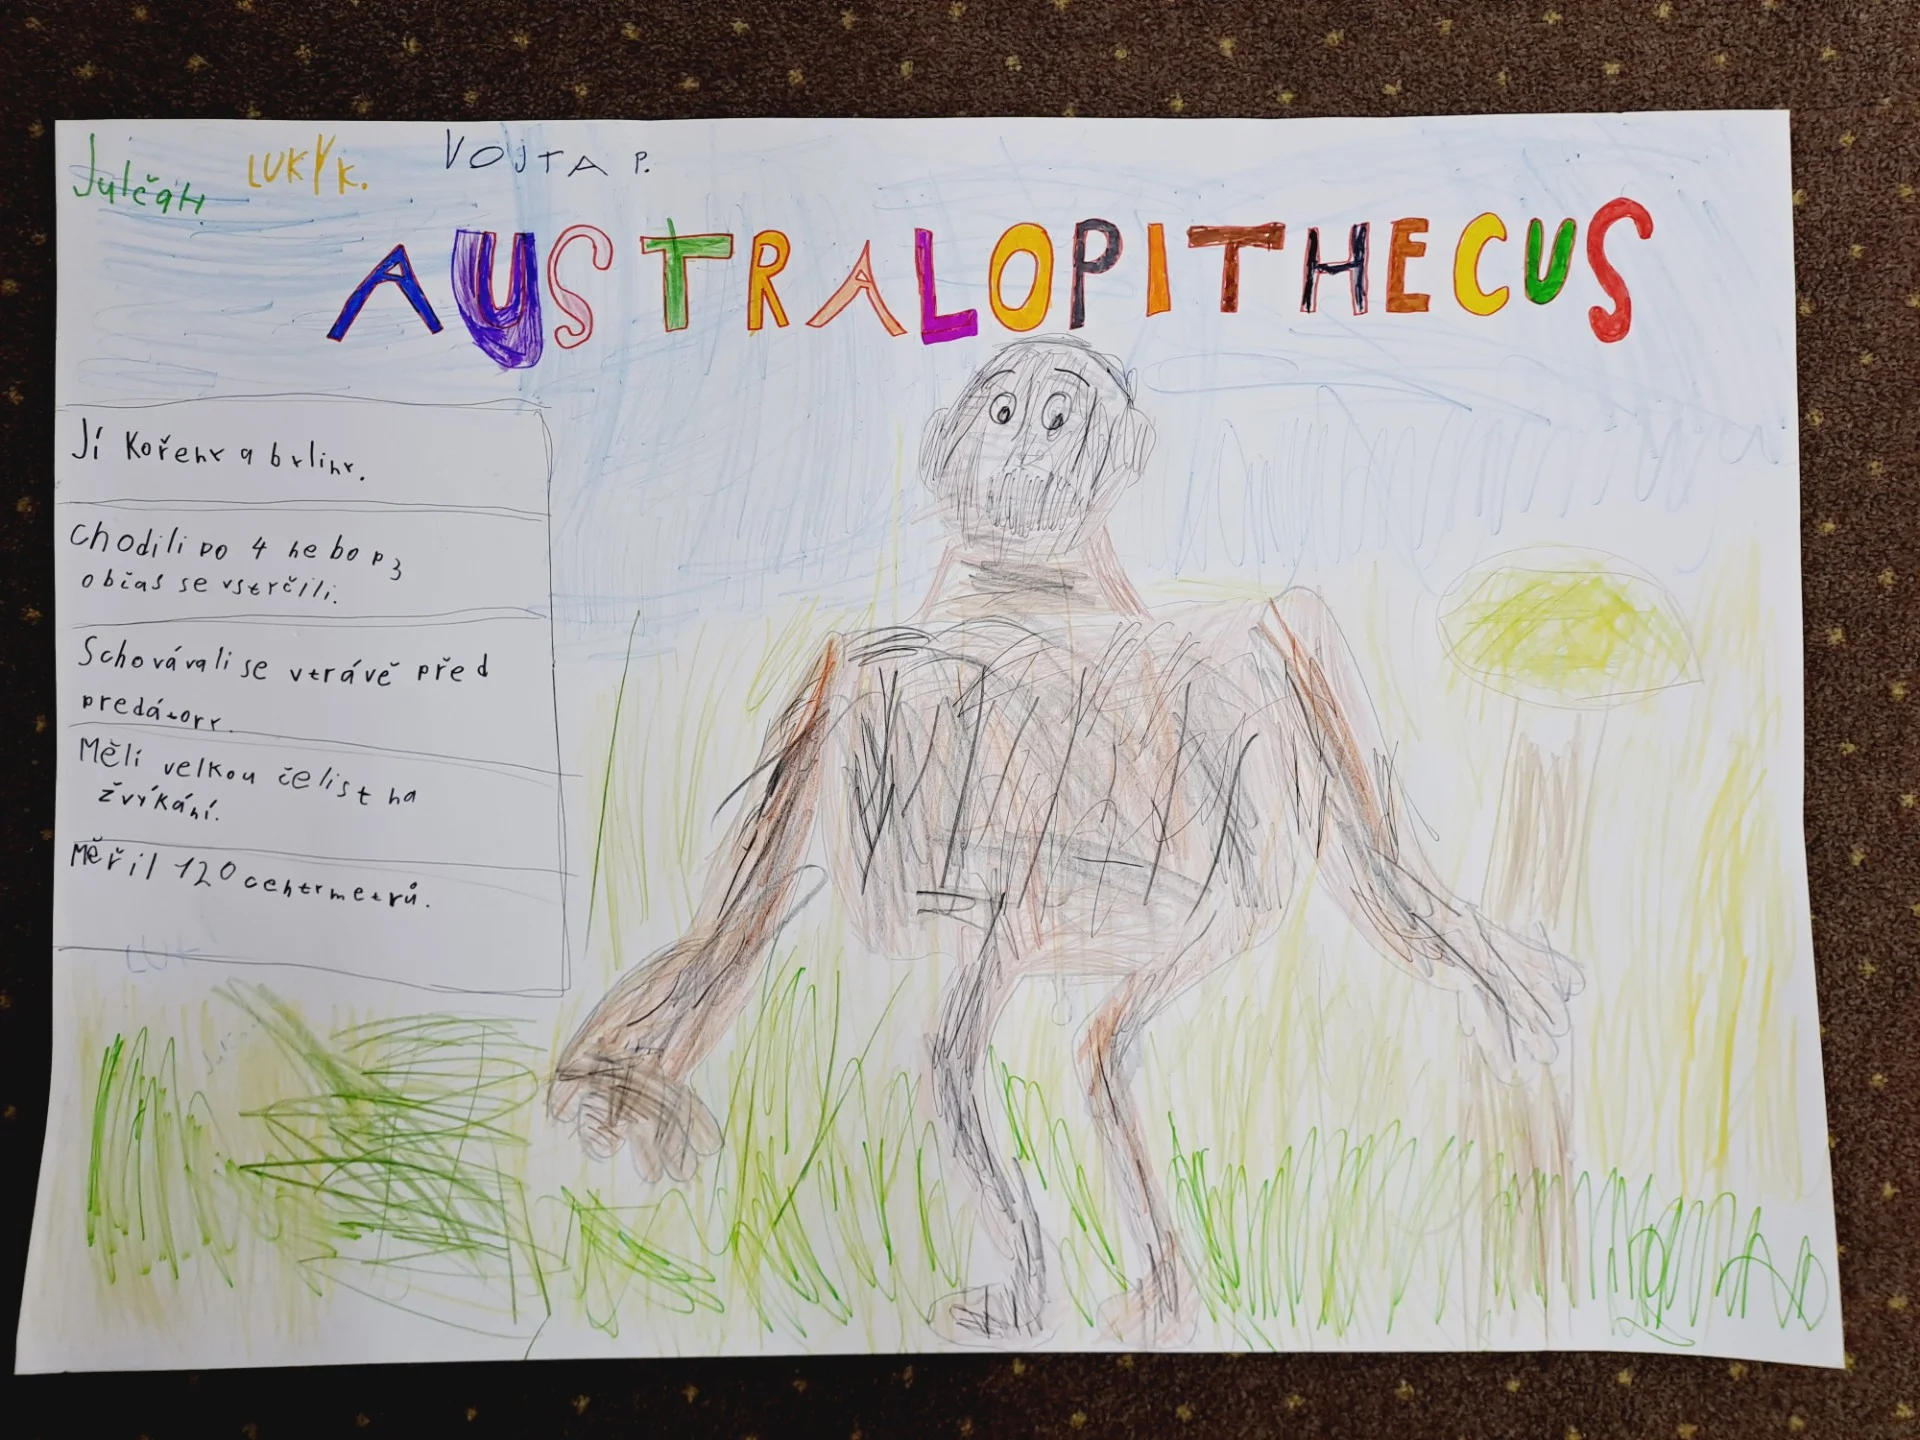 Julča H.
LUKY K.
VOJTA P.
AUSTRALOPITHECUS
Jí Kořeny a byliny.
Chodili po 4 nebo p3
občas se vstrčili.
Schovávali se v trávě před
predátory.
Měli velkou čelist na
žvýkání.
Měřil 120 centymetrů.
LUK